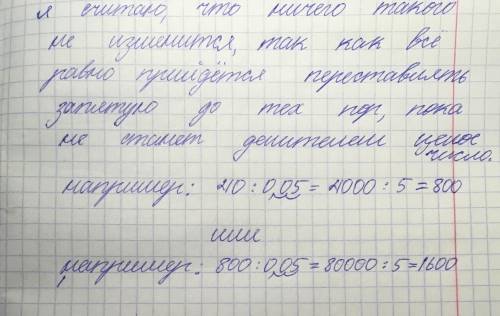 я считаю, что ничего такого
не изменится, так как всё
равно прийдётся переставлять
запятую до тех пор, пока
не станет делителем целое
число.
например: 40 : 0,05 = 4000 : 5 = 800
или
например: 800 : 0,05 = 80000 : 5 = 1600